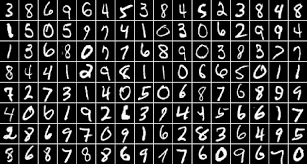 3 8 6 9 6 4 5 3 8 4 5 2 3 8 4 8
1 5 0 5 9 7 4 1 0 3 0 6 2 9 9 4
1 3 6 8 0 7 7 6 8 9 0 3 8 3 7 7
8 4 4 1 2 9 8 1 1 0 6 6 5 0 1 1
7 2 7 3 1 4 0 5 0 6 8 7 6 8 9 9
4 0 6 1 9 2 6 3 9 4 4 5 6 6 1 7
2 8 6 9 7 0 9 1 6 2 8 3 6 4 9 5
8 6 8 7 8 8 6 9 1 7 6 0 9 6 7 0